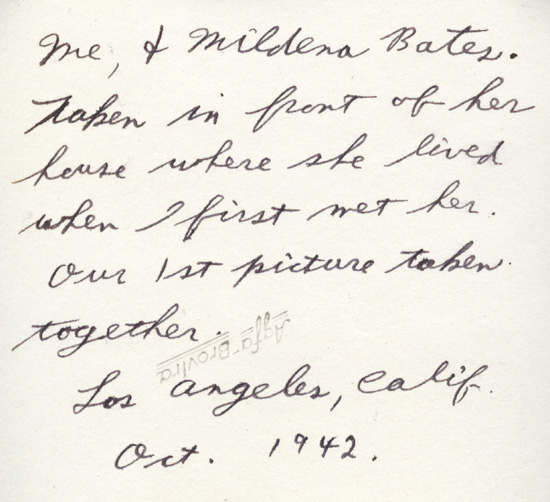 Me, & Mildena Bates.
Taken in front of her
house where she lived
when I first met her.
Our 1st picture taken
together.
Agfa-Brovira
Los Angeles, Calif.
Oct. 1942.